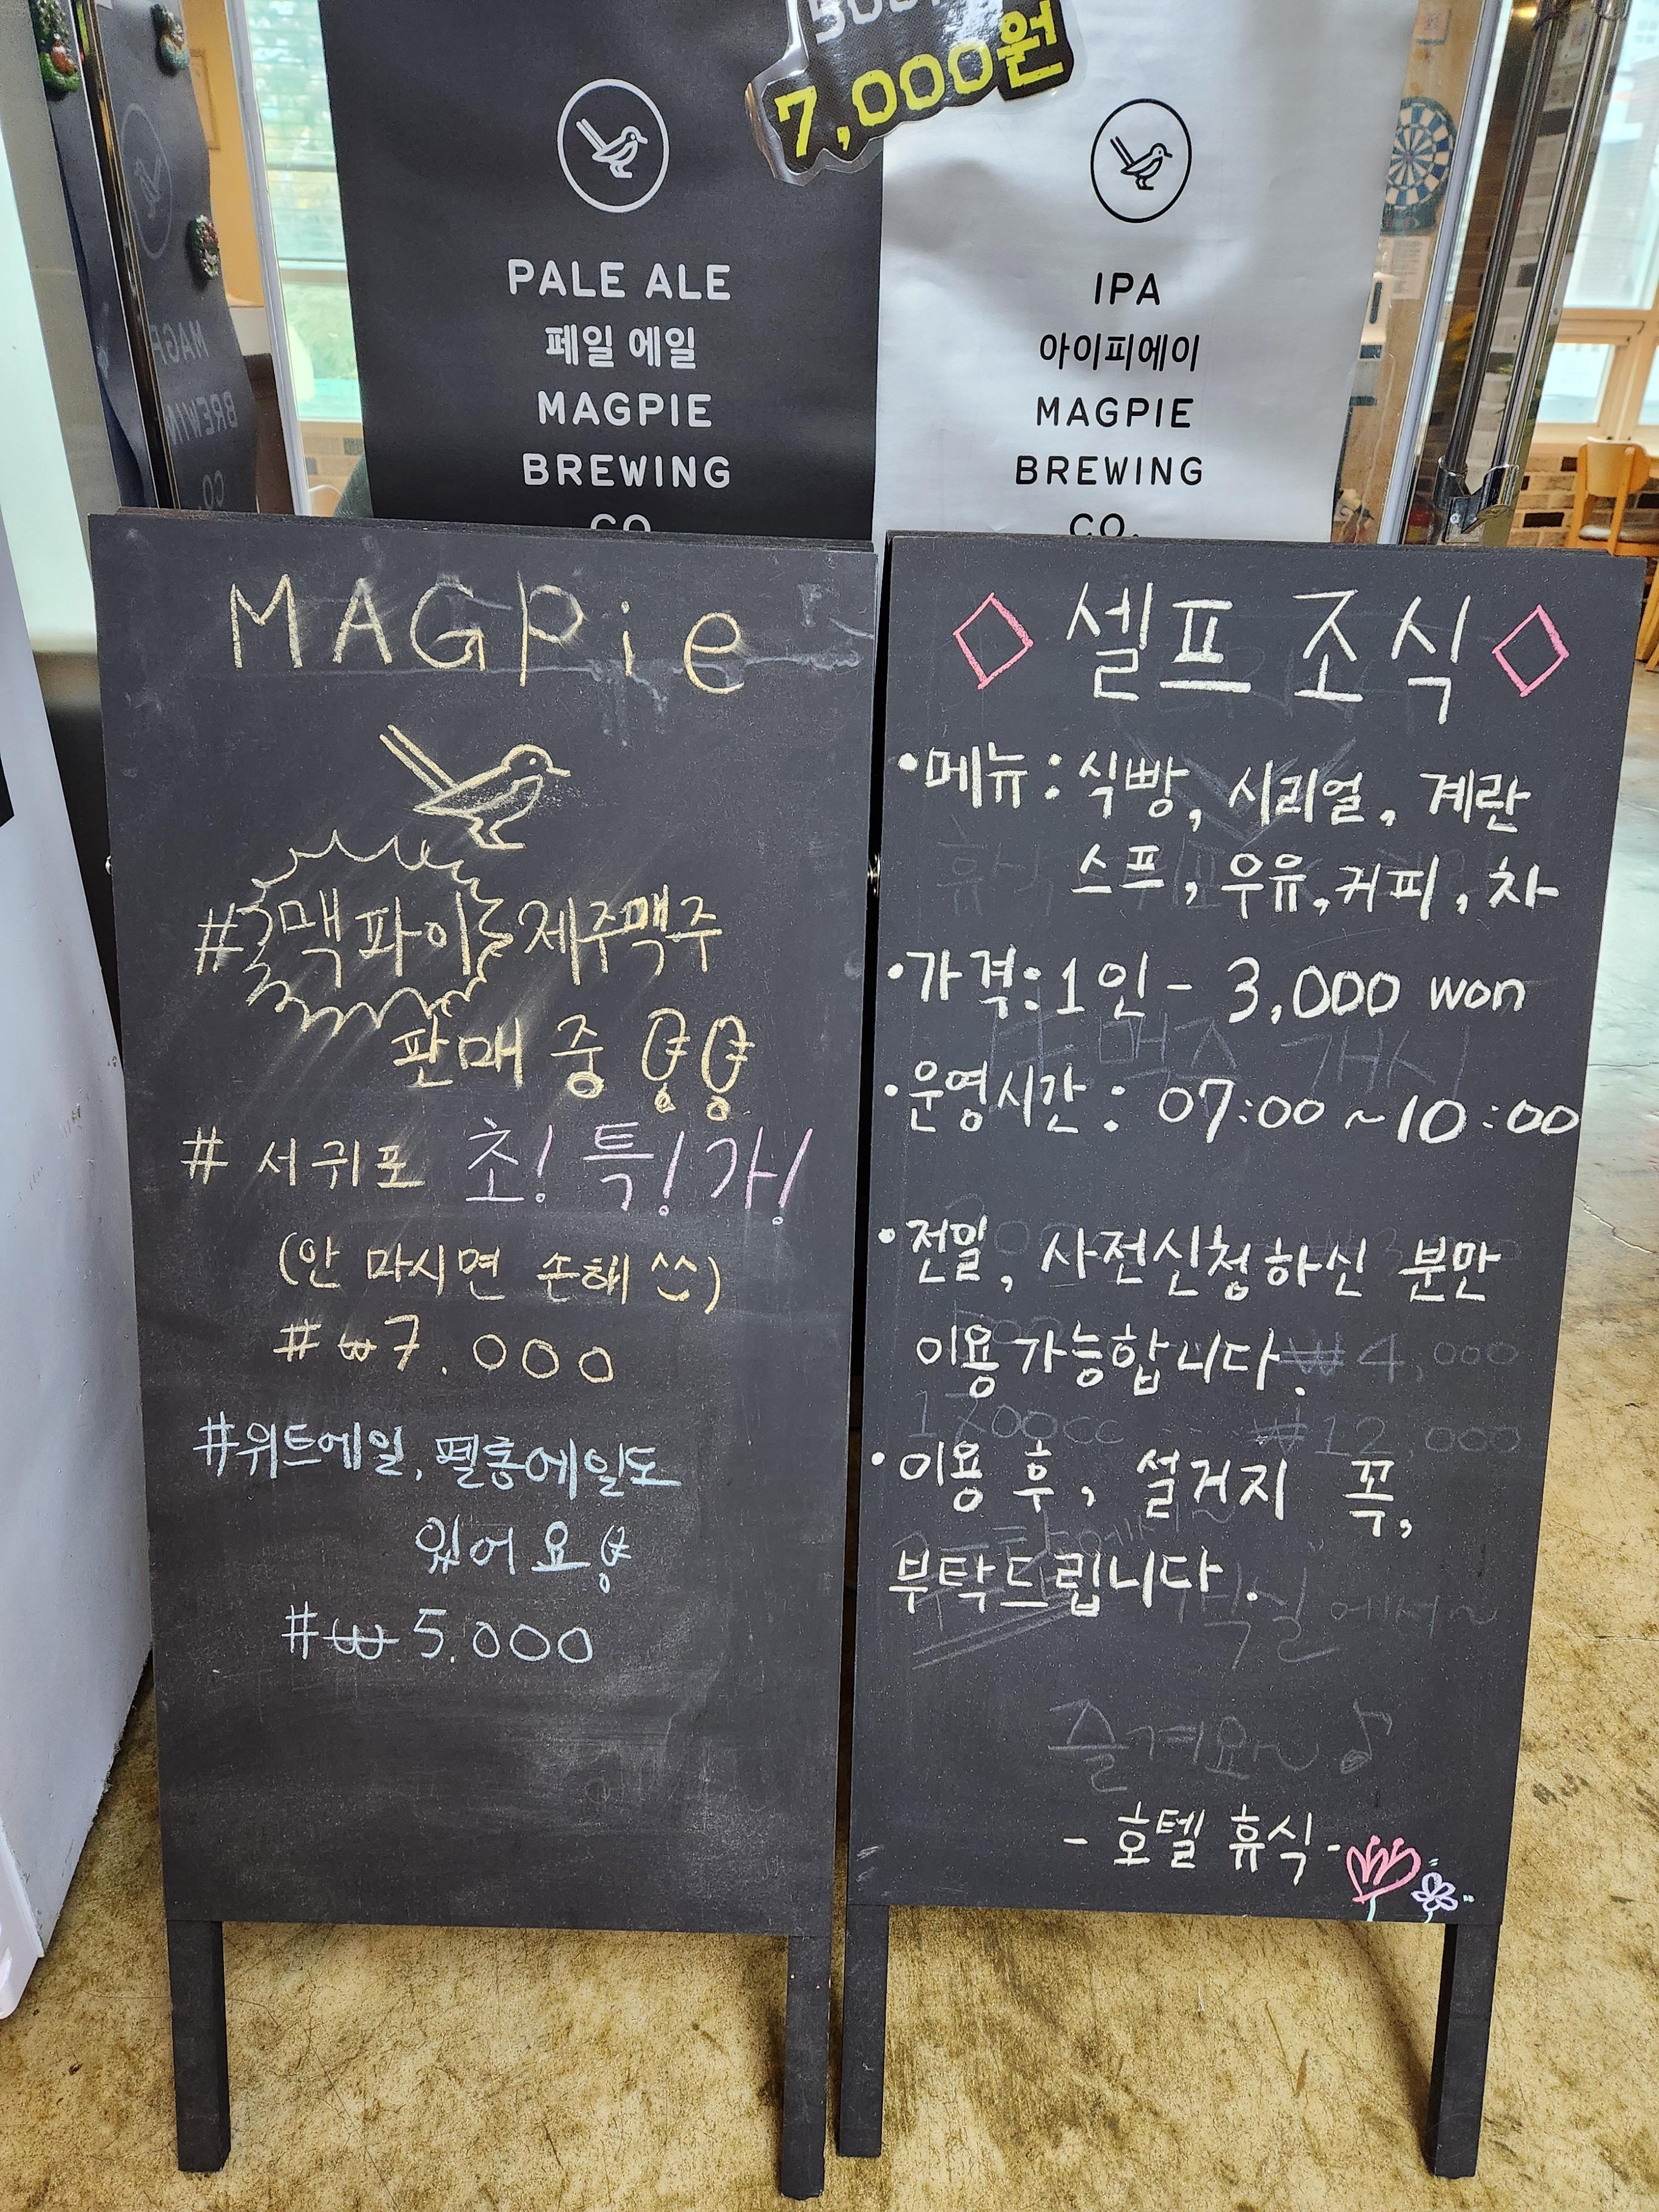 7,000원
PALE ALE
페일 에일
MAGPIE
BREWING
CO.
IPA
아이피에이
MAGPIE
BREWING
CO.
MAGPie
#맥파이 제주맥주
판매 중
# 서귀포 초! 특! 가!
(안 마시면 손해 ^^)
# ₩7.000
#위트에일, 펠롱에일도
있어요
#₩5.000
셀프 조식
•메뉴 : 식빵, 시리얼, 계란
스프, 우유, 커피, 차
•가격: 1인 - 3,000 won
•운영시간 : 07:00 ~ 10:00
•전일, 사전신청하신 분만
이용가능합니다.
•이용 후, 설거지 꼭,
부탁드립니다.
즐겨요~♪
- 호텔 휴식 -